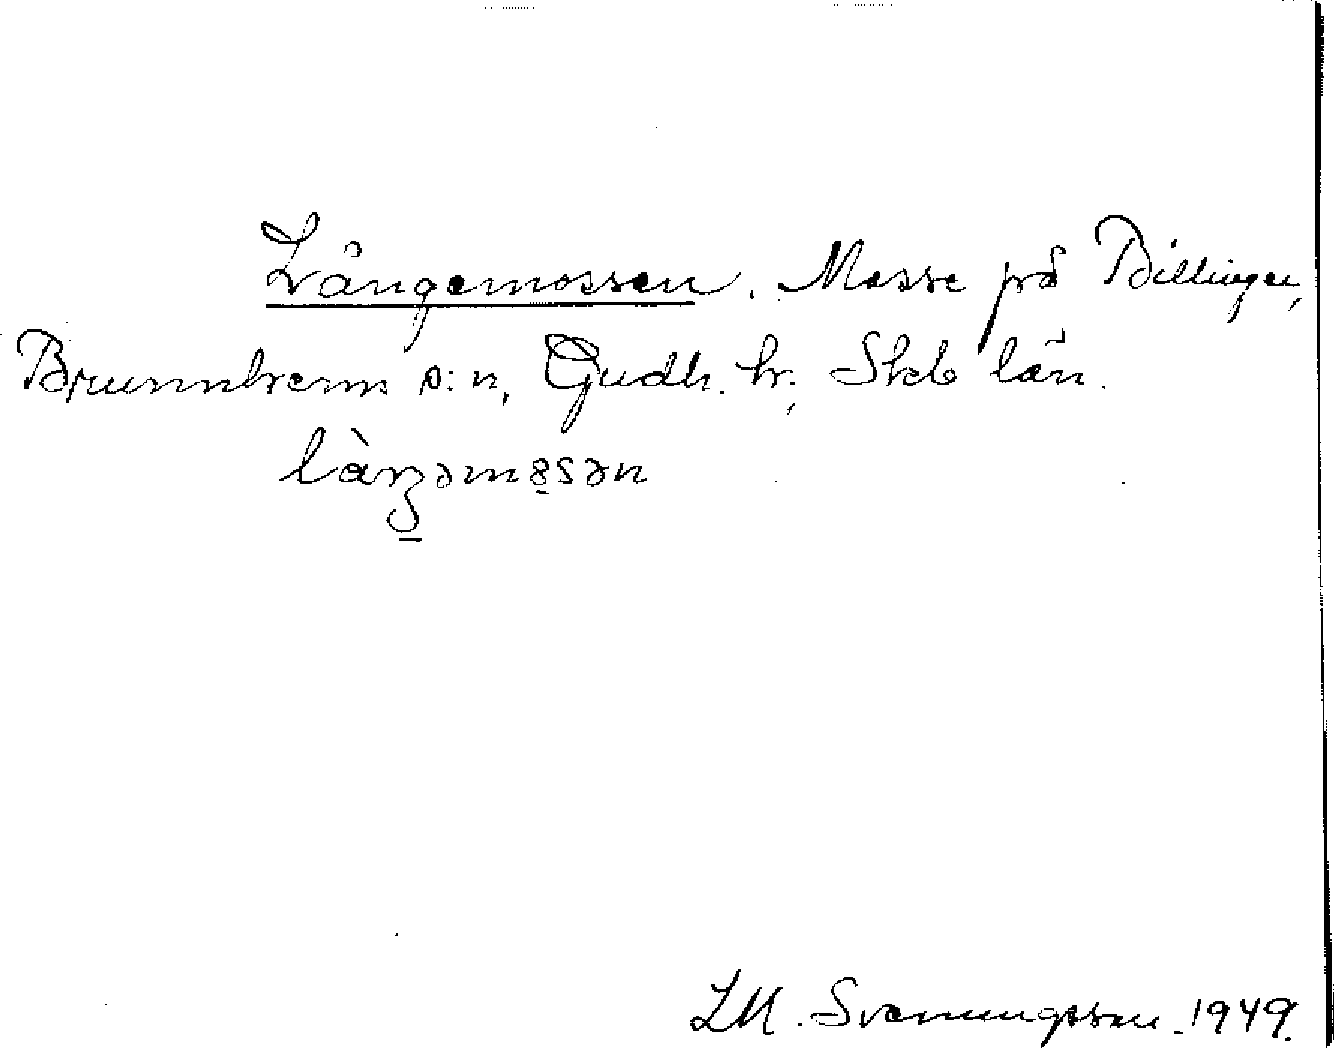 Långemossen. Mosse på Billingen,
Brunnhem s:n, Gudh. hr, Skb län.
làŋəmɞ̠sən
LM. Svenungsson. 1949.